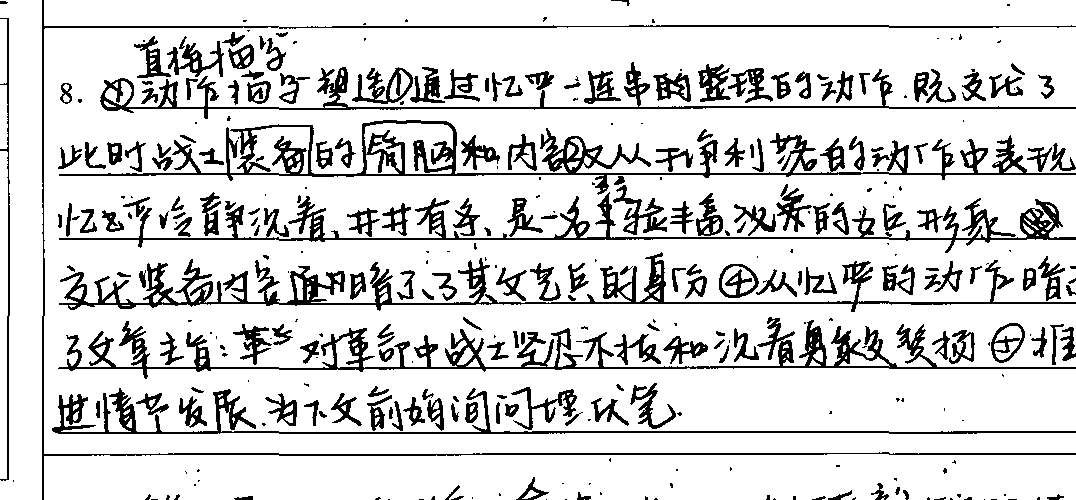 直接描写
8. ④动作描写塑造①通过忆严一连串的整理的动作.既交代了
此时战士装备的简陋和内容②又从干净利落的动作中表现
忆严冷静沉着、井井有条、是一名经验丰富、沉着的女兵形象
交代装备内容 暗示了其文艺兵的身份④从忆严的动作暗
了文章主旨:革 对革命中战士坚忍不拔和沉着勇敢 ④推
进情节发展.为下文 询问埋伏笔.